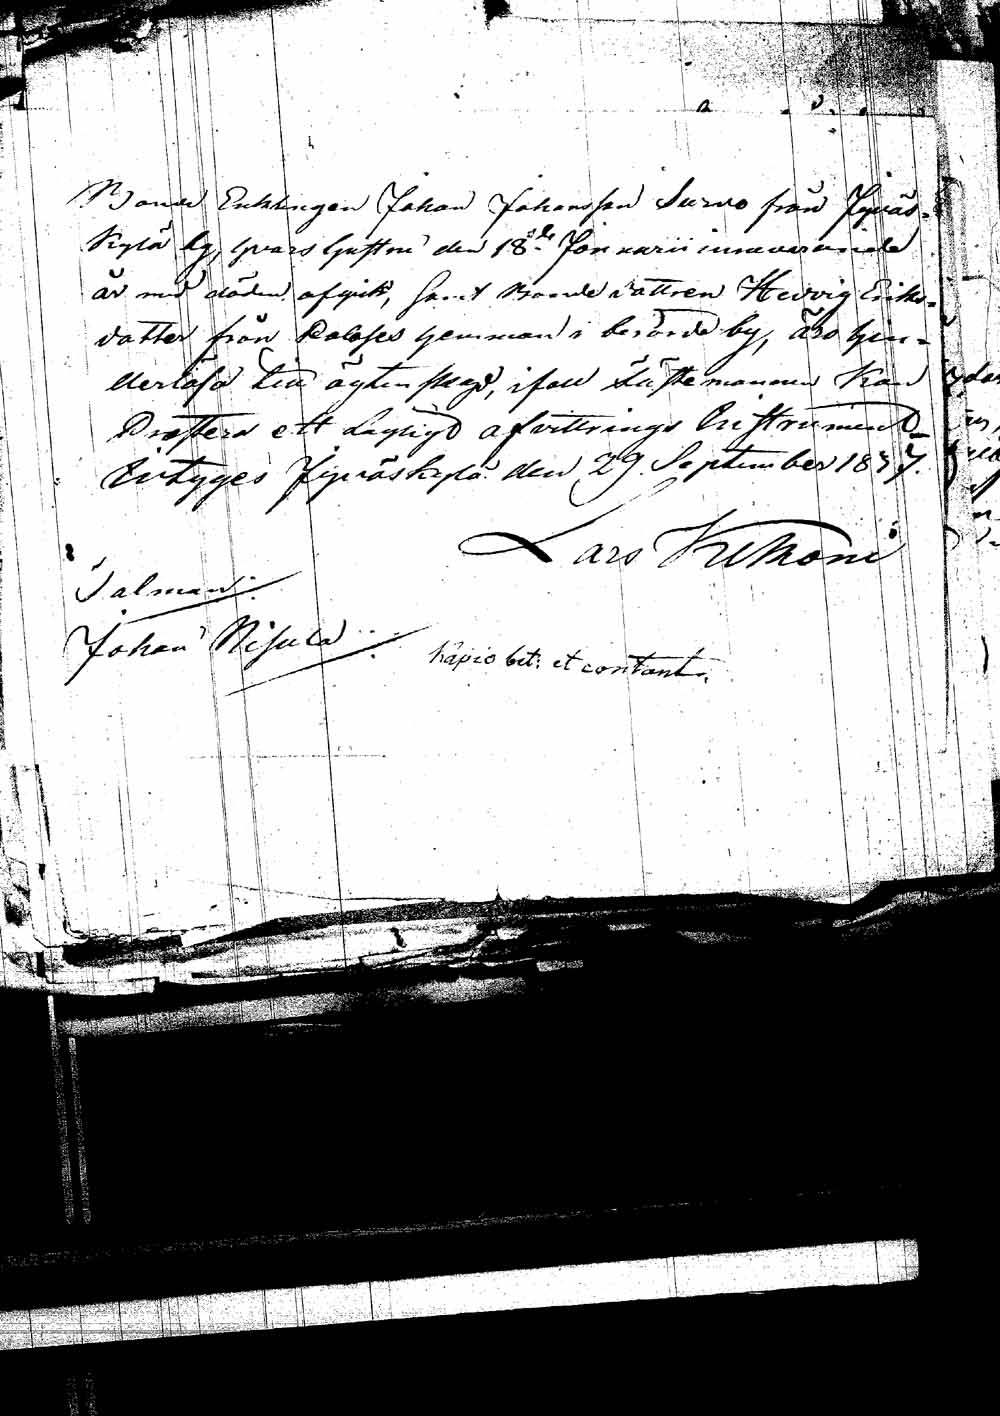 Bonde Enklingen Johan Johansson Survo från Jyväs-
kylä by, hvars hustru den 18de Januarii innevarande
år med döden afgick, samt Bonde dottren Hedvig Eriks-
dotter från hemman i berörde by, äro hin-
derlösa till ägtenskap, ifall Fästemannen kan
Præstera ett Lagligt afvittrings Instrument_
Betyges Jyväskylä den 29 September 1837.
Lars Kukkoni
Talman
Johan Nisula
Kapio bet: et contant.